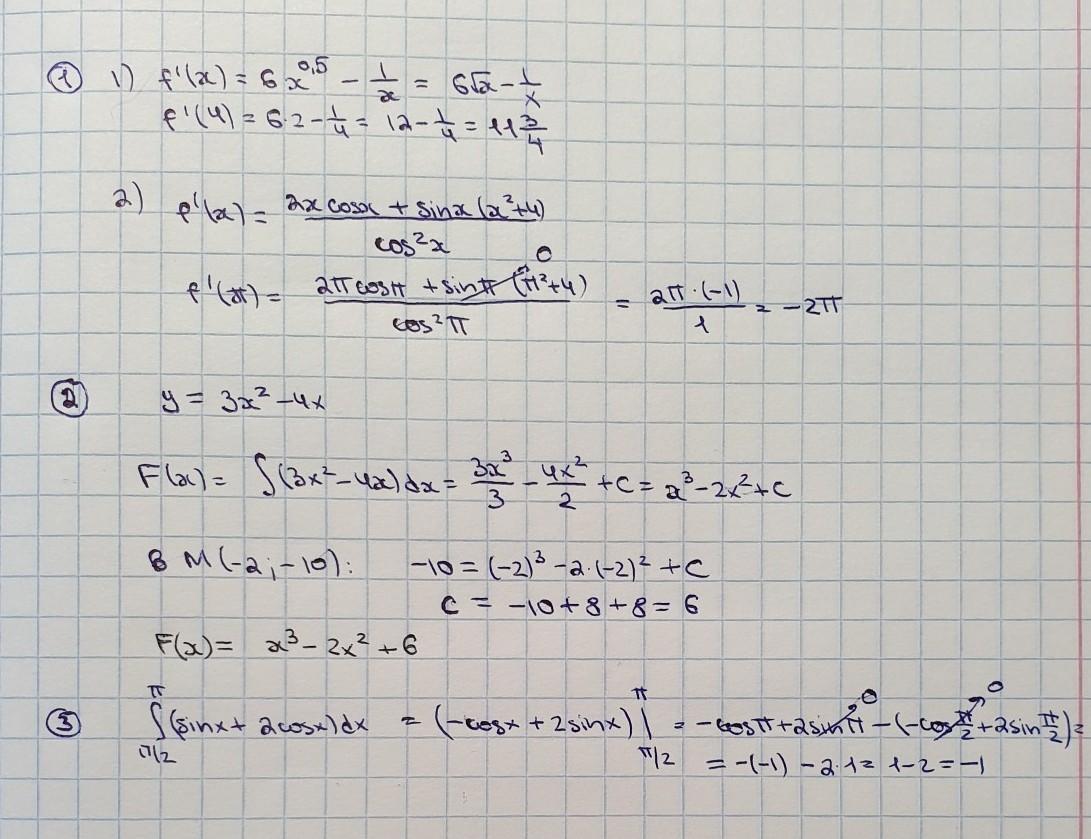 ① 1) f'(x) = 6x^0,5 − 1/x = 6√x − 1/x
f'(4) = 6·2 − 1/4 = 12 − 1/4 = 11 3/4
2) f'(x) = (2x cosx + sinx (x²+4))/(cos²x)
f'(π) = (2π cosπ + sinπ (π²+4))/(cos²π) = (2π·(−1))/1 = −2π
0
② y = 3x² − 4x
F(x) = ∫(3x² − 4x)dx = 3x³/3 − 4x²/2 + C = x³ − 2x² + C
В M(−2; −10): −10 = (−2)³ − 2·(−2)² + C
C = −10 + 8 + 8 = 6
F(x) = x³ − 2x² + 6
③ ∫_{π/2}^{π} (sinx + 2cosx)dx = (−cosx + 2sinx)|_{π/2}^{π} = −cosπ + 2sinπ − (−cos π/2 + 2sin π/2) =
0 0
= −(−1) − 2·1 = 1 − 2 = −1